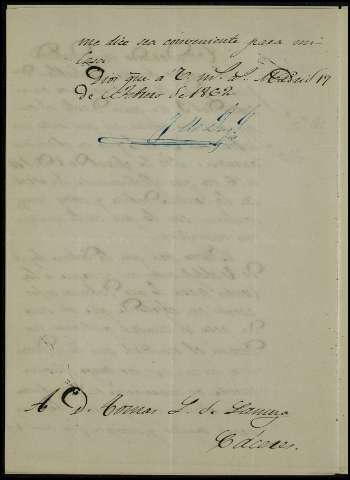 me dice sea conveniente para mi
Casa.
Dios gue a V. ms. as. Madrid 19
de Febrero de 1862
A D. Tomas L. de
Cáceres.